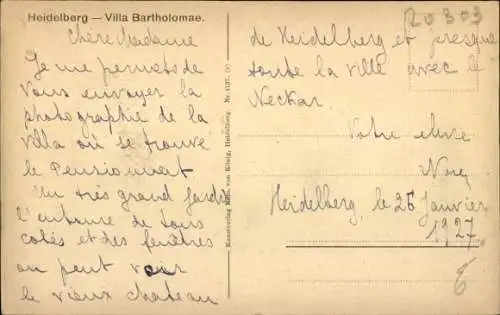 Heidelberg — Villa Bartholomae.
Chère Madame
Je me permets de
vous envoyer la
photographie de la
villa où se trouve
le Pensionnat
Un très grand jardin
l'entoure de tous
cotés et des fenêtres
on peut voir
le vieux chateau
Kunstverlag Edm. von König, Heidelberg. Nr. 1137.
20303
de Heidelberg et presque
toute la ville avec le
Neckar.
Votre elève
Heidelberg, le 25 Janvier
1927